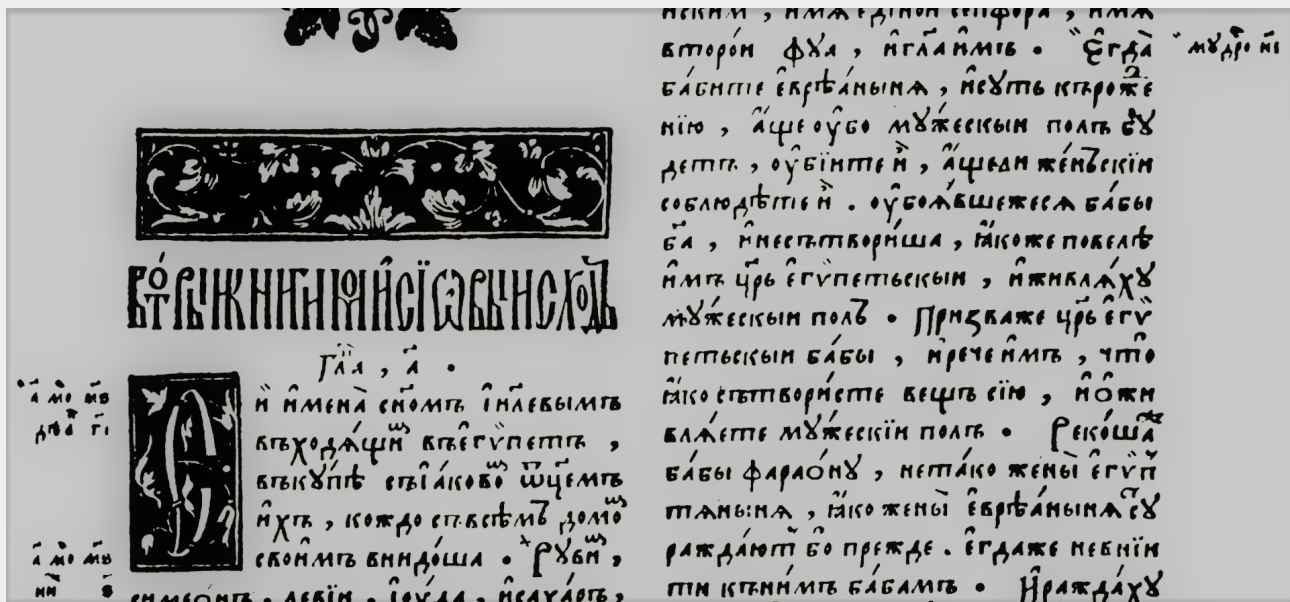 вто́рыѧ книги мѡѵсїѡвы исхо́дъ
гл҃а , а҃ .
Сїи имена̀ сн҃омъ іи҃лвымъ
въходѧ́щиⷨ въегѵпетъ ,
въкꙋ́пѣ съіа́ковоⷨ ѿце́мъ
и́хъ , кождо съвсѣ́мъ домоⷨ
свои́мъ внидо́ша . Рꙋвиⷨ ,
симео́нъ , леві́и , іꙋ́да , исаха́ръ ,
второ́и фꙋа , и҆гл҃аи҆мъ . Єгда̀
ба́бите еврѣ́аныня , и҆сꙋть къроже
нїю , а҆́ще оу҆бо мꙋ́жескыи полъ бꙋ
детъ , оу҆бїи́те и҆̀ , а҆́щели же́ньскїи
соблюдѣ́те и҆̀ . оу҆боѧ́вшежесѧ ба́бы
бг҃а , и҆несътвори́ша , ꙗ҆́коже повелѣ
и҆мъ цр҃ь е҆гѵ́петьскыи , и҆живлѧ́хꙋ
мꙋ́жескыи полъ . Призваже цр҃ь е҆гѵ
петьскыи ба́бы , и҆рече и҆мъ , что̀
ꙗ҆́ко сътвори́сте вещь сїю , и҆ ѡ҆жи
влѧ́ете мꙋ́жескїи полъ . Реко́ша
ба́бы фарао́нꙋ , нета́ко жены̀ е҆гѵп
тѧныня , ꙗ҆́ко жены̀ е҆врѣ́аныня сꙋ
ражда́ют бо прежде . е҆гдаже невнїи
ти къни́мъ ба́бамъ . И҆ражда́хꙋ